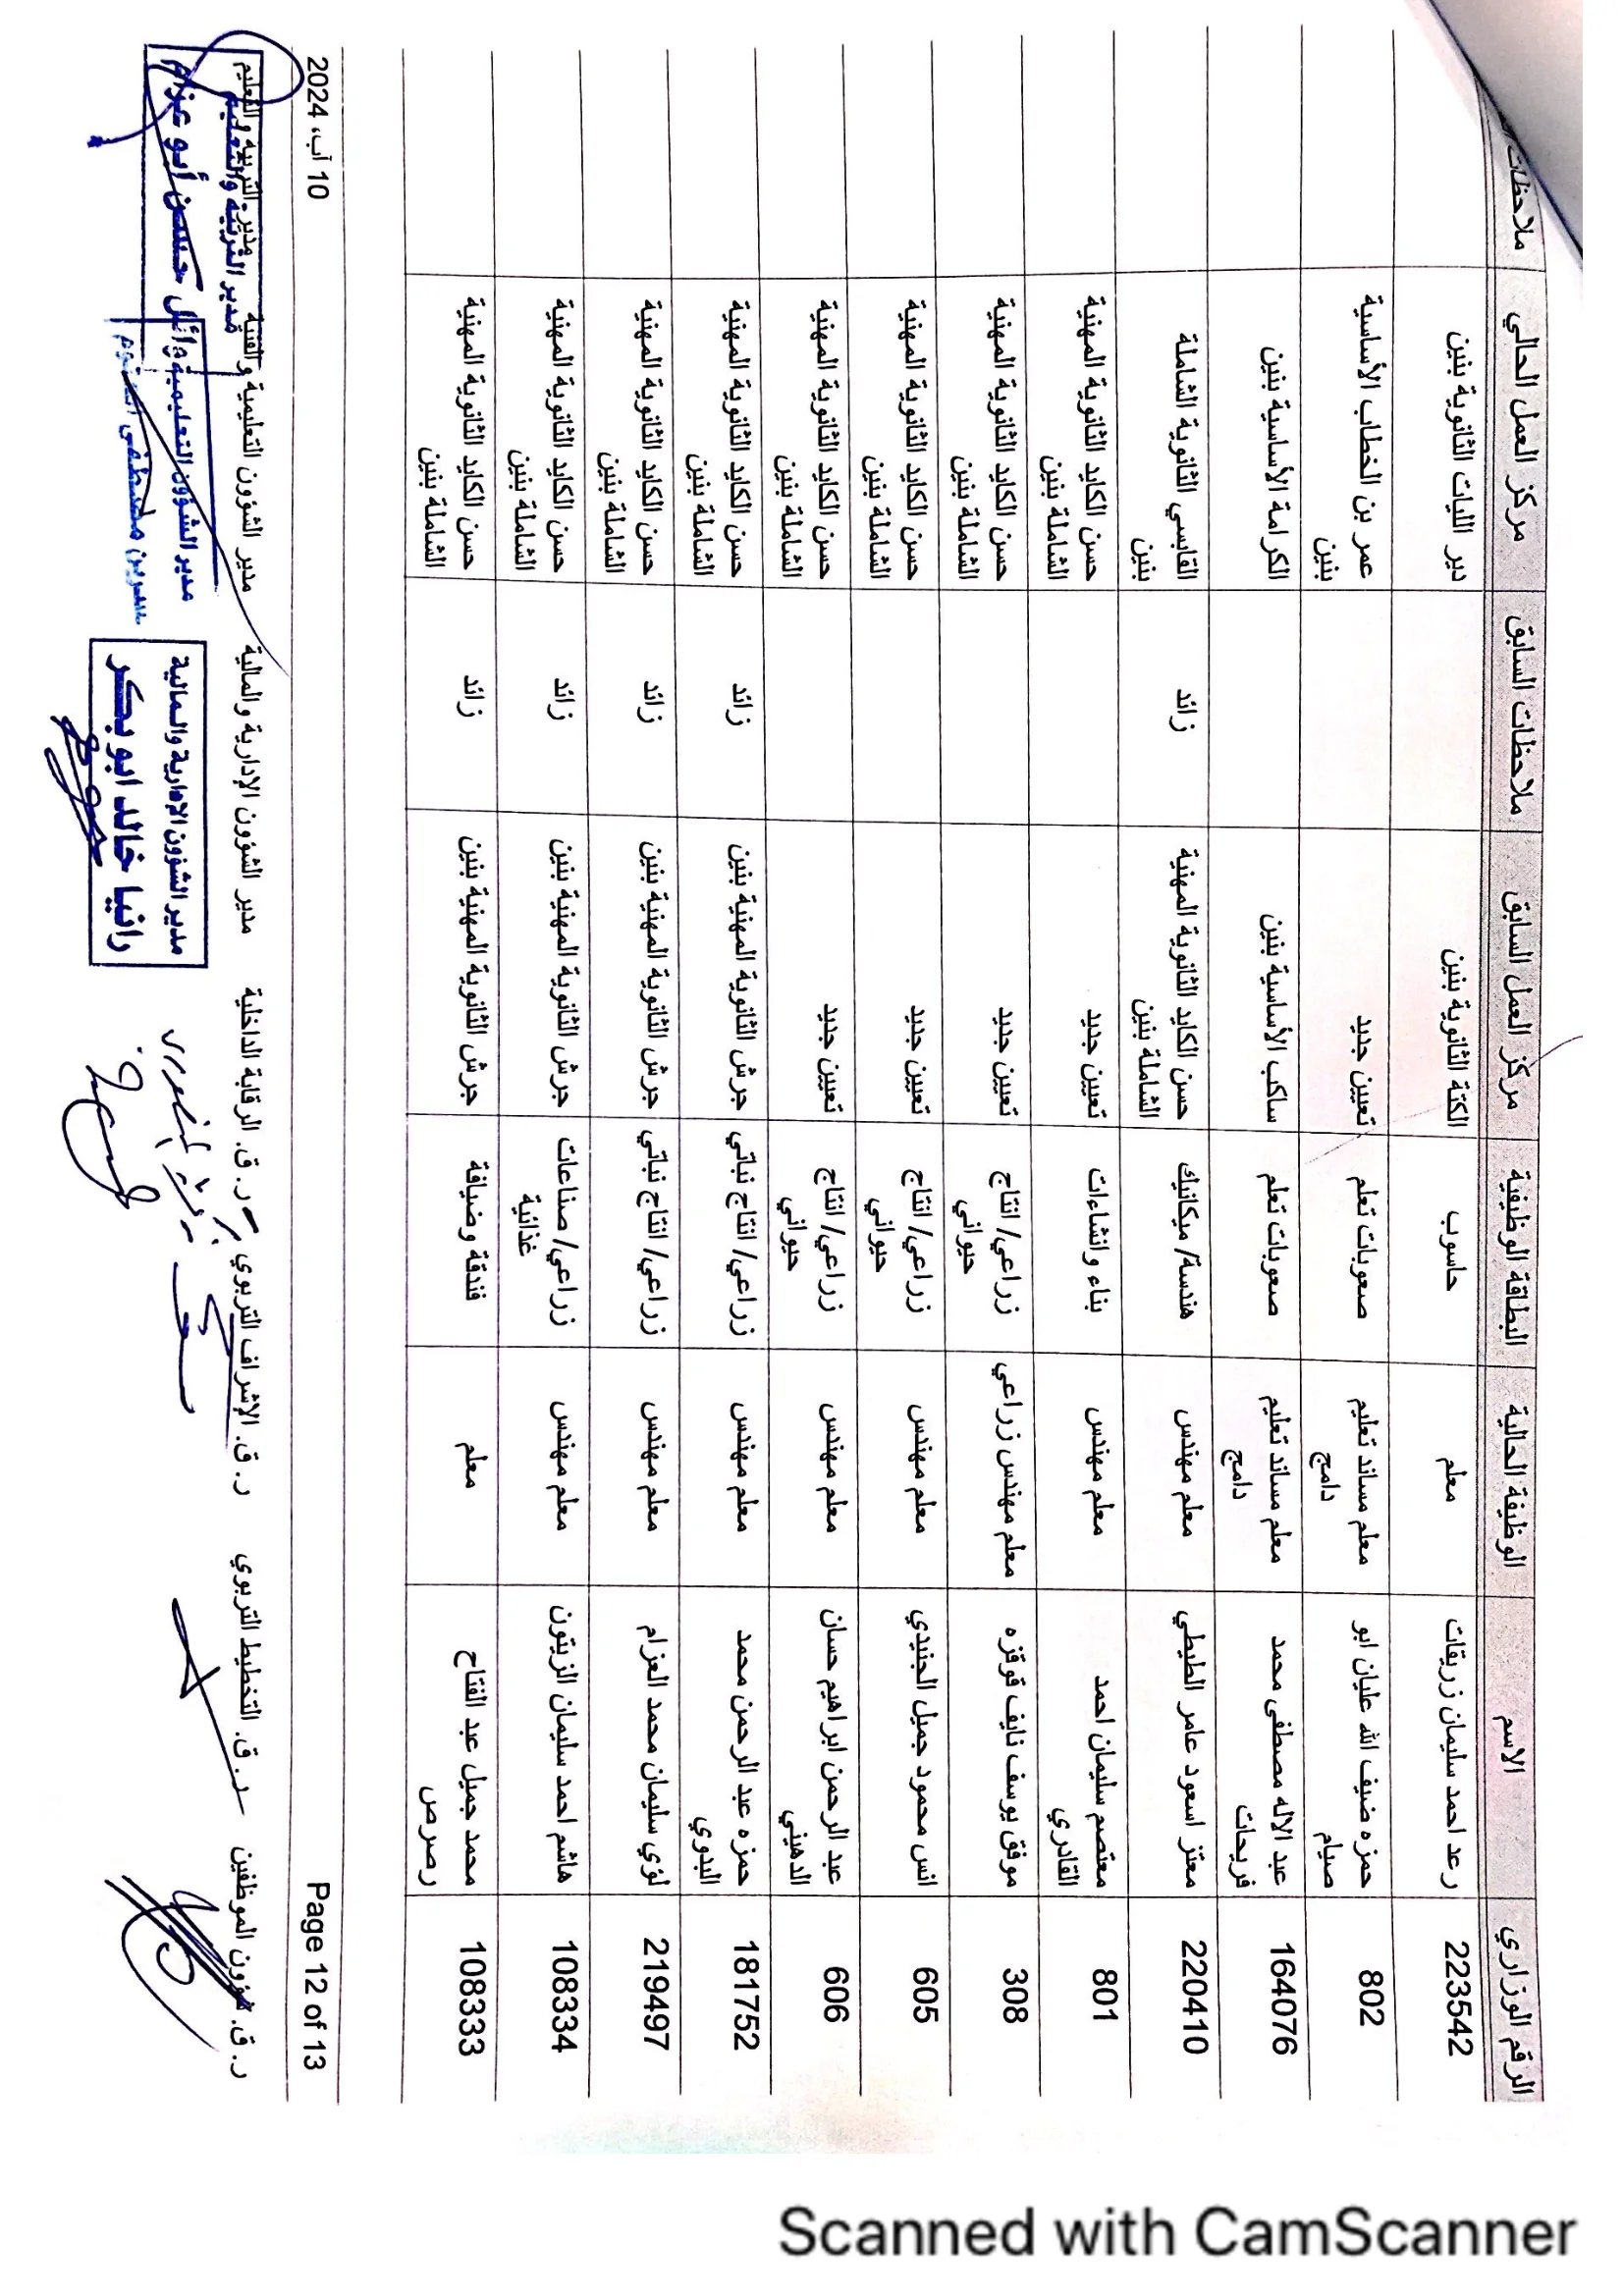 الرقم الوزاري الاسم الوظيفة الحالية البطاقة الوظيفية مركز العمل السابق ملاحظات السابق مركز العمل الحالي ملاحظات
223542 رعد احمد سليمان زريقات معلم حاسوب الكتة الثانوية بنين دير الليات الثانوية بنين
802 حمزه ضيف الله عليان ابو معلم مساند تعليم صعوبات تعلم تعيين جديد عمر بن الخطاب الأساسية
صيام دامج بنين
164076 عبد الاله مصطفى محمد معلم مساند تعليم صعوبات تعلم ساكب الأساسية بنين الكرامة الأساسية بنين
فريحات دامج
220410 معتز اسعود عامر الطيطي معلم مهندس هندسة/ ميكانيك حسن الكايد الثانوية المهنية زائد القابسي الثانوية الشاملة
الشاملة بنين بنين
801 معتصم سليمان احمد معلم مهندس بناء وانشاءات تعيين جديد حسن الكايد الثانوية المهنية
القادري الشاملة بنين
308 موفق يوسف نايف قوقزه معلم مهندس زراعي زراعي/ انتاج تعيين جديد حسن الكايد الثانوية المهنية
حيواني الشاملة بنين
605 انس محمود جميل الجنيدي معلم مهندس زراعي/ انتاج تعيين جديد حسن الكايد الثانوية المهنية
حيواني الشاملة بنين
606 عبد الرحمن ابراهيم حسان معلم مهندس زراعي/ انتاج تعيين جديد حسن الكايد الثانوية المهنية
الدهيني حيواني الشاملة بنين
181752 حمزه عبد الرحمن محمد معلم مهندس زراعي/ انتاج نباتي جرش الثانوية المهنية بنين زائد حسن الكايد الثانوية المهنية
البدوي الشاملة بنين
219497 لؤي سليمان محمد العزام معلم مهندس زراعي/ انتاج نباتي جرش الثانوية المهنية بنين زائد حسن الكايد الثانوية المهنية
الشاملة بنين
108334 هاشم احمد سليمان الزيتون معلم مهندس زراعي/ صناعات جرش الثانوية المهنية بنين زائد حسن الكايد الثانوية المهنية
غذائية الشاملة بنين
108333 محمد جميل عبد الفتاح معلم فندقة وضيافة جرش الثانوية المهنية بنين زائد حسن الكايد الثانوية المهنية
رصرص الشاملة بنين
Page 12 of 13 10 آب، 2024
ر. ق. شؤون الموظفين ر. ق. التخطيط التربوي ر. ق. الإشراف التربوي ر. ق. الرقابة الداخلية مدير الشؤون الإدارية والمالية مدير الشؤون التعليمية والفنية مدير التربية والتعليم
مدير الشؤون الإدارية والمالية
رانيا خالد ابو بكر
مدير الشؤون التعليمية
مدير التربية والتعليم
وائل حسن أبو عزام
Scanned with CamScanner